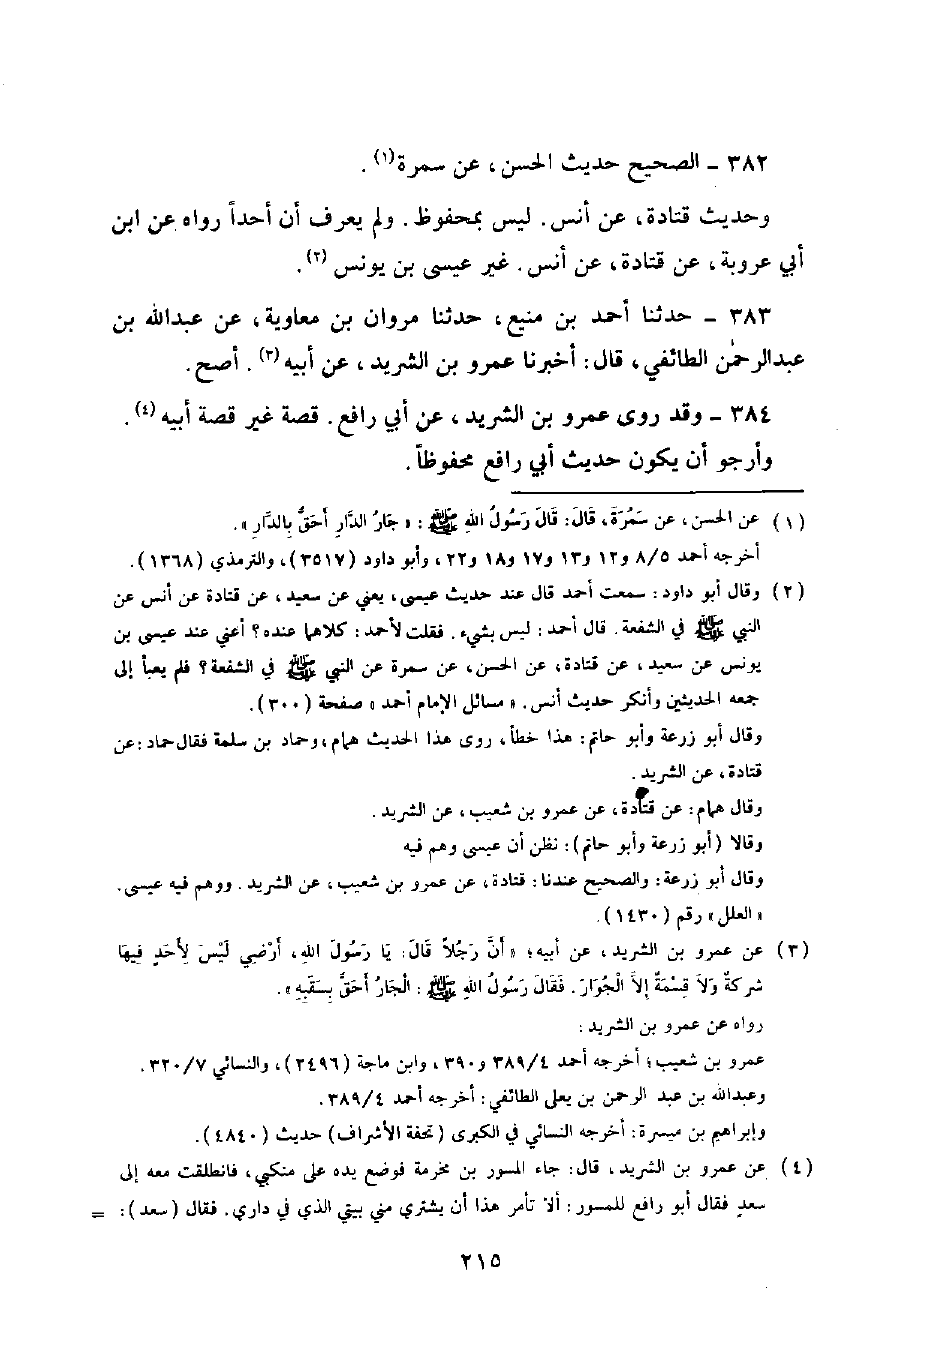 ٣٨٢ - الصحيح حديث الحسن ، عن سمرة(١) .
وحديث قتادة ، عن أنس . ليس بمحفوظ . ولم يعرف أن أحداً رواه عن ابن
أبي عروبة ، عن قتادة ، عن أنس . غير عيسى بن يونس (٢).
٣٨٣ - حدثنا أحمد بن منيع ، حدثنا مروان بن معاوية ، عن عبدالله بن
عبدالرحمٰن الطائفي ، قال : أخبرنا عمرو بن الشريد ، عن أبيه (٣) . أصح .
٣٨٤ - وقد روى عمرو بن الشريد ، عن أبي رافع . قصة غير قصة أبيه (٤) .
وأرجو أن يكون حديث أبي رافع محفوظاً .
(١) عن الحسن ، عن سَمُرَة ، قَالَ : قَالَ رَسُولُ اللهِ ﷺ : « جَارُ الدَّارِ أَحَقُّ بِالدَّارِ » .
أخرجه أحمد ٨/٥ و١٢ و١٣ و١٧ و١٨ و٢٢ ، وأبو داود (٣٥١٧) ، والترمذي (١٣٦٨) .
(٢) وقال أبو داود : سمعت أحمد قال عند حديث عيسى ، يعني عن سعيد ، عن قتادة عن أنس عن
النبي ﷺ في الشفعة . قال أحمد : ليس بشيء . فقلت لأحمد : كلاهما عنده ؟ أعني عند عيسى بن
يونس عن سعيد ، عن قتادة ، عن الحسن ، عن سمرة عن النبي ﷺ في الشفعة ؟ فلم يعبأ إلى
جمعه الحديثين وأنكر حديث أنس . « مسائل الإمام أحمد » صفحة (٣٠٠) .
وقال أبو زرعة وأبو حاتم : هذا خطأ ، روى هذا الحديث همام ، وحماد بن سلمة فقال حماد : عن
قتادة ، عن الشريد .
وقال همام : عن قتادة ، عن عمرو بن شعيب ، عن الشريد .
وقالا (أبو زرعة وأبو حاتم) : نظن أن عيسى وهم فيه
وقال أبو زرعة : والصحيح عندنا : قتادة ، عن عمرو بن شعيب ، عن الشريد . ووهم فيه عيسى .
« العلل » رقم (١٤٣٠) .
(٣) عن عمرو بن الشريد ، عن أبيه ؛ « أَنَّ رَجُلاً قَالَ : يَا رَسُولَ اللهِ ، أَرْضِي لَيْسَ لِأَحَدٍ فِيهَا
شركةٌ وَلاَ قِسْمَةٌ إِلاَّ الْجُوَارَ . فَقَالَ رَسُولُ اللهِ ﷺ : الْجَارُ أَحَقُّ بِسَقَبِهِ » .
رواه عن عمرو بن الشريد :
عمرو بن شعيب ؛ أخرجه أحمد ٣٨٩/٤ و٣٩٠ ، وابن ماجة (٢٤٩٦) ، والنسائي ٣٢٠/٧ .
وعبدالله بن عبد الرحمن بن يعلى الطائفي : أخرجه أحمد ٣٨٩/٤ .
وإبراهيم بن ميسرة : أخرجه النسائي في الكبرى (تحفة الأشراف) حديث (٤٨٤٠) .
(٤) عن عمرو بن الشريد ، قال : جاء المسور بن مخرمة فوضع يده على منكبي ، فانطلقت معه إلى
سعدٍ فقال أبو رافع للمسور : ألا تأمر هذا أن يشتري مني بيتي الذي في داري . فقال (سعد) : =
٢١٥